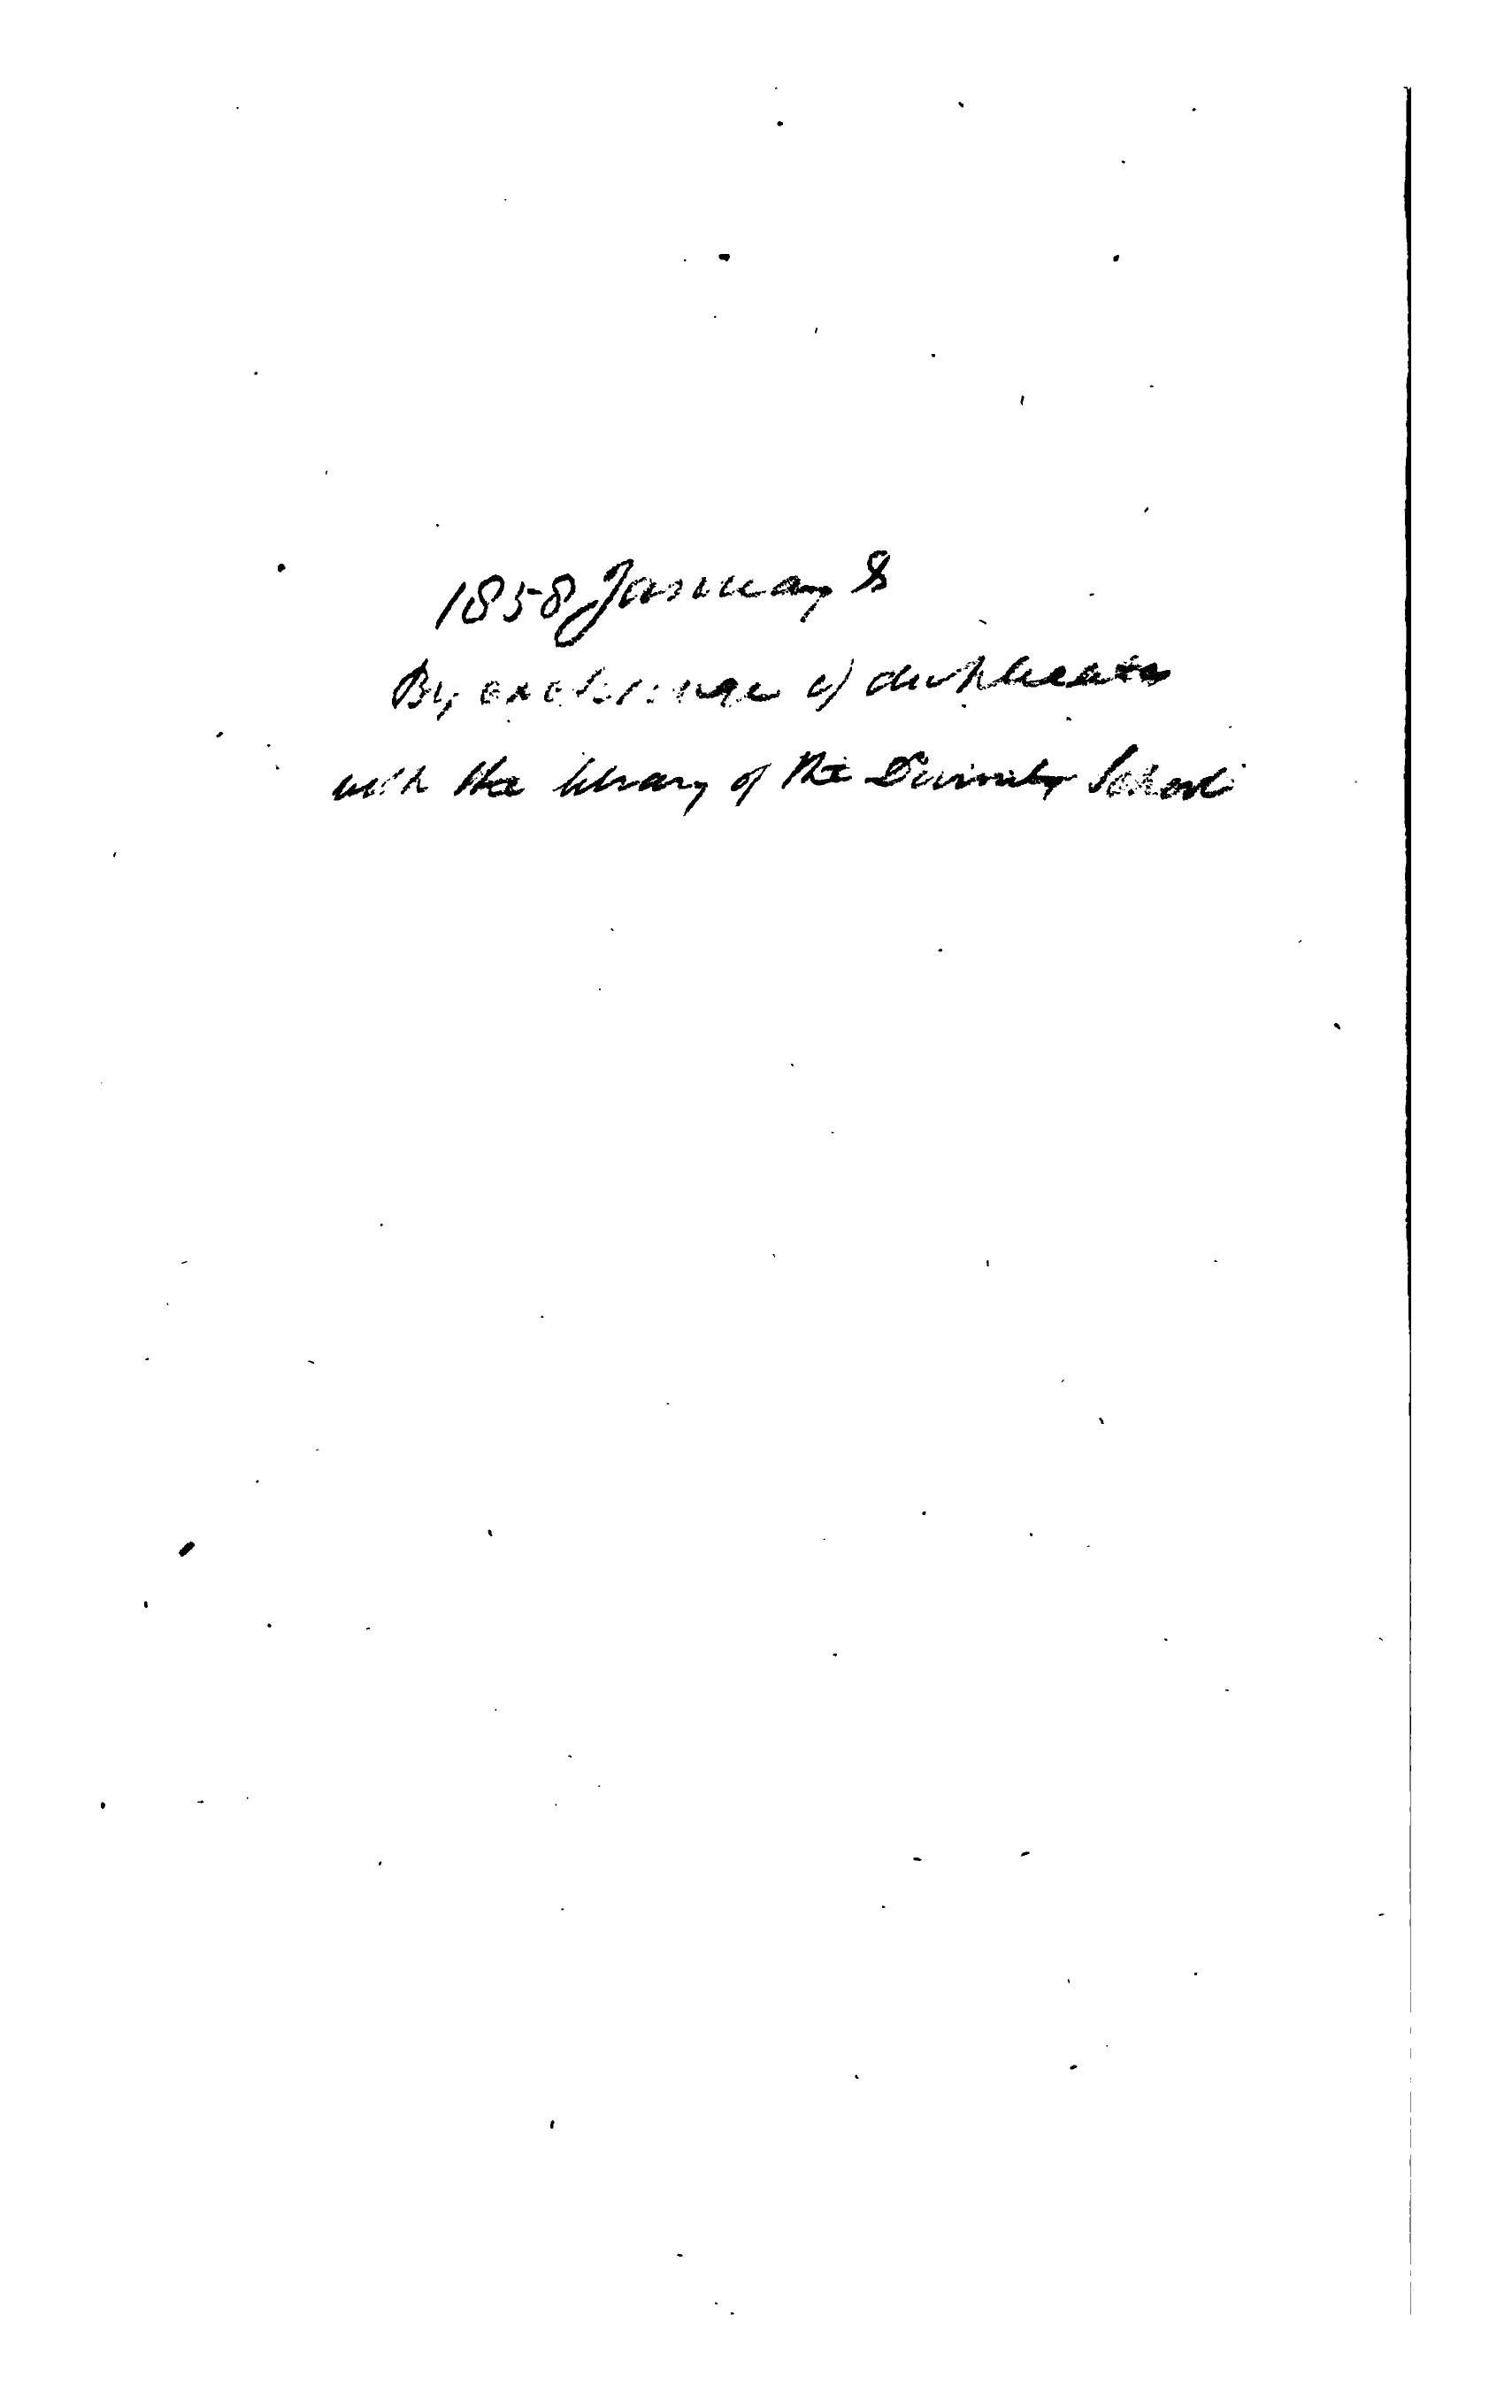 1858 January 8
By exchange of duplicates
with the library of the Divinity School